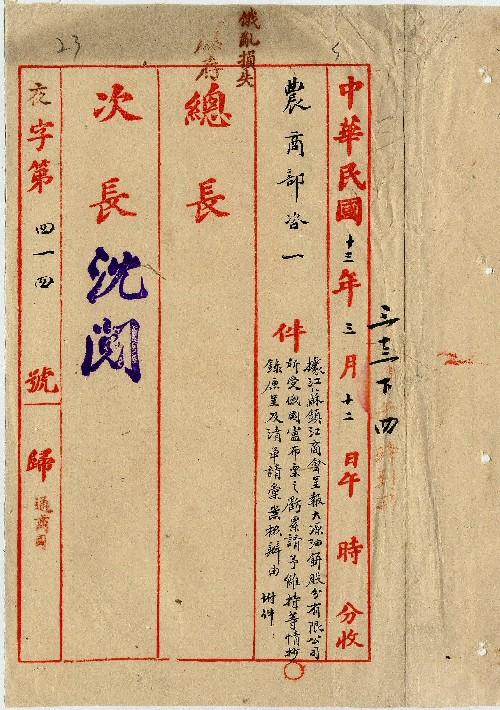 俄亂損失
23
三三下四
中華民國十三年三月十二日午 時 分收
農商部咨一件
據江蘇鎮江商會呈報大源油餅股分有限公司
所受俄國盧布票之虧累請予維持等情抄
錄原呈及清單請彙案核辦由 附件
總長
次長 沈閱
衣字第四一四號歸通商司